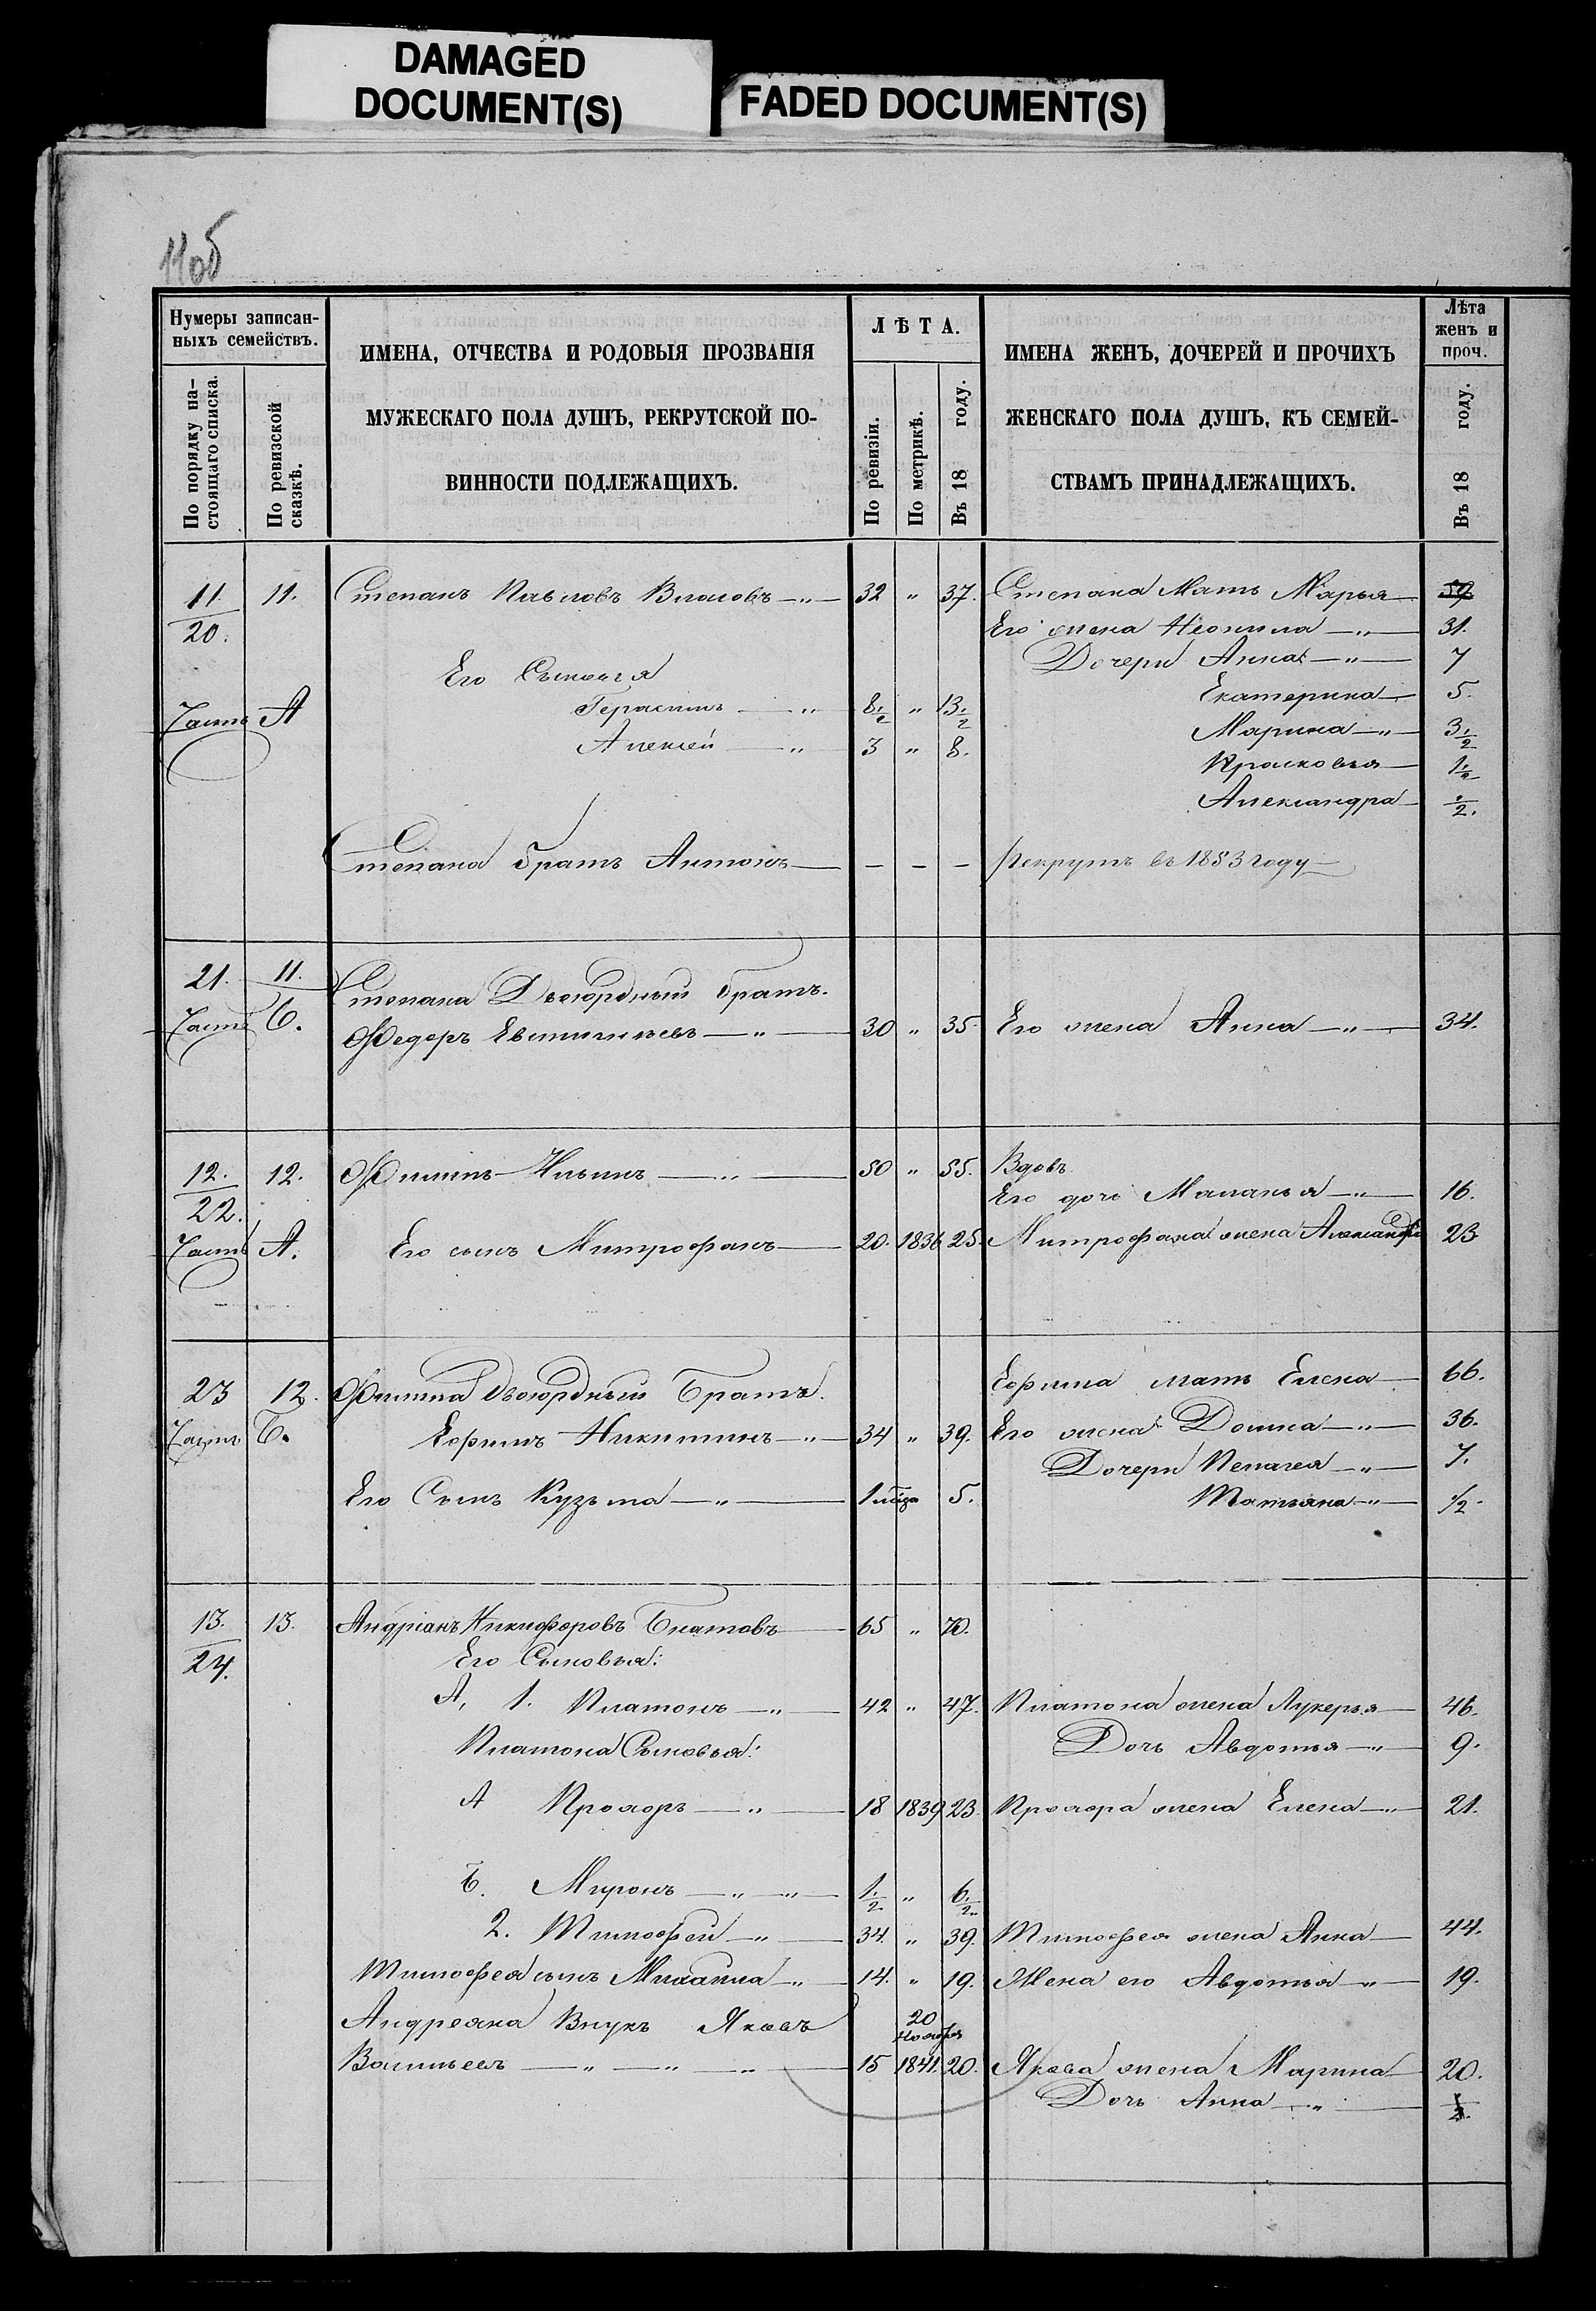 DAMAGED
DOCUMENT(S)
FADED DOCUMENT(S)
11об
Нумеры записан-
ныхъ семействъ.
По порядку на-
стоящаго списка.
По ревизской
сказкѣ.
ИМЕНА, ОТЧЕСТВА И РОДОВЫЯ ПРОЗВАНІЯ
МУЖЕСКАГО ПОЛА ДУШЪ, РЕКРУТСКОЙ ПО-
ВИННОСТИ ПОДЛЕЖАЩИХЪ.
ЛѢТА.
По ревизіи.
По метрикѣ.
Въ 18 году.
ИМЕНА ЖЕНЪ, ДОЧЕРЕЙ И ПРОЧИХЪ
ЖЕНСКАГО ПОЛА ДУШЪ, КЪ СЕМЕЙ-
СТВАМЪ ПРИНАДЛЕЖАЩИХЪ.
Лѣта
женъ и
проч.
Въ 18 году.
11. 11. Степанъ Павловъ Власовъ — " — 32 " 37. Степана Мать Марья 59
20. Его жена Неонила — " — 31.
Дочери Анна — " — 7
Его Сыновья Екатерина — 5.
Часть А Герасимъ — " 8 1/2 " 13 1/2 Марина — " — 3 1/2
Алексей — " 3 " 8. Прасковья — 1 1/2
Александра — 1/2.
Степана братъ Антонъ — — — — рекрутъ въ 1853 году
21. 11. Степана Двоюрдный братъ.
Часть Б. Федоръ — " — 30 " 35. Его жена Анна — " — 34.
12. 12. Филипъ Ильинъ — " — 50 " 55. Вдовъ
22. Его дочь Маланья — " — 16.
Часть А. Его сынъ Митрофанъ — 20. 1836 25. Митрофана жена Александра 23
23 12. Филипа двоюрдный Братъ. Ефима мать Елена — 66.
Часть Б. Ефимъ Никитинъ — " — 34 " 39. Его жена Домна — " — 36.
Дочери Пелагея — " — 7.
Его Сынъ Кузьма — " — 5. Татьяна — " — 1/2.
13. 13. Андріанъ Никифоровъ — 65 " 70.
24. Его Сыновья:
А, 1. Платонъ — " — 42 " 47. Платона жена Лукерья — 46.
Платона Сыновья: Дочь Авдотья — " 9.
А Прохоръ — " — 18 1839 23. Прохора жена Елена — " — 21.
Б. Миронъ — " — " — 1 1/2 " 6 1/2
2. Тимофей — " — 34. " 39. Тимофея жена Анна — 44.
Тимофея сынъ Михаила — " — 14. " 19. Жена его Авдотья — " — 19.
Андреяна Внукъ Яковъ 20 Ноября
Васильевъ — " — " — " — 15 1841. 20. Якова жена Марина — 20.
Дочь Анна — " —